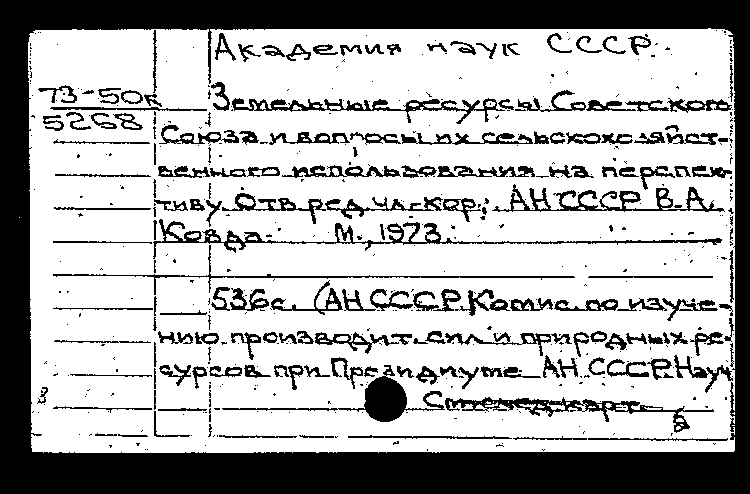 Академия наук СССР.
73-50к
5268
Земельные ресурсы Советского
Союза и вопросы их сельскохозяйст-
венного использования на перспек-
тиву. Отв. ред. чл.-кор. АН СССР В.А.
Ковда. М., 1973.
536с. (АН СССР. Комис. по изуче-
нию производит. сил и природных ре-
сурсов при Президиуме АН СССР. Науч
В
карт.